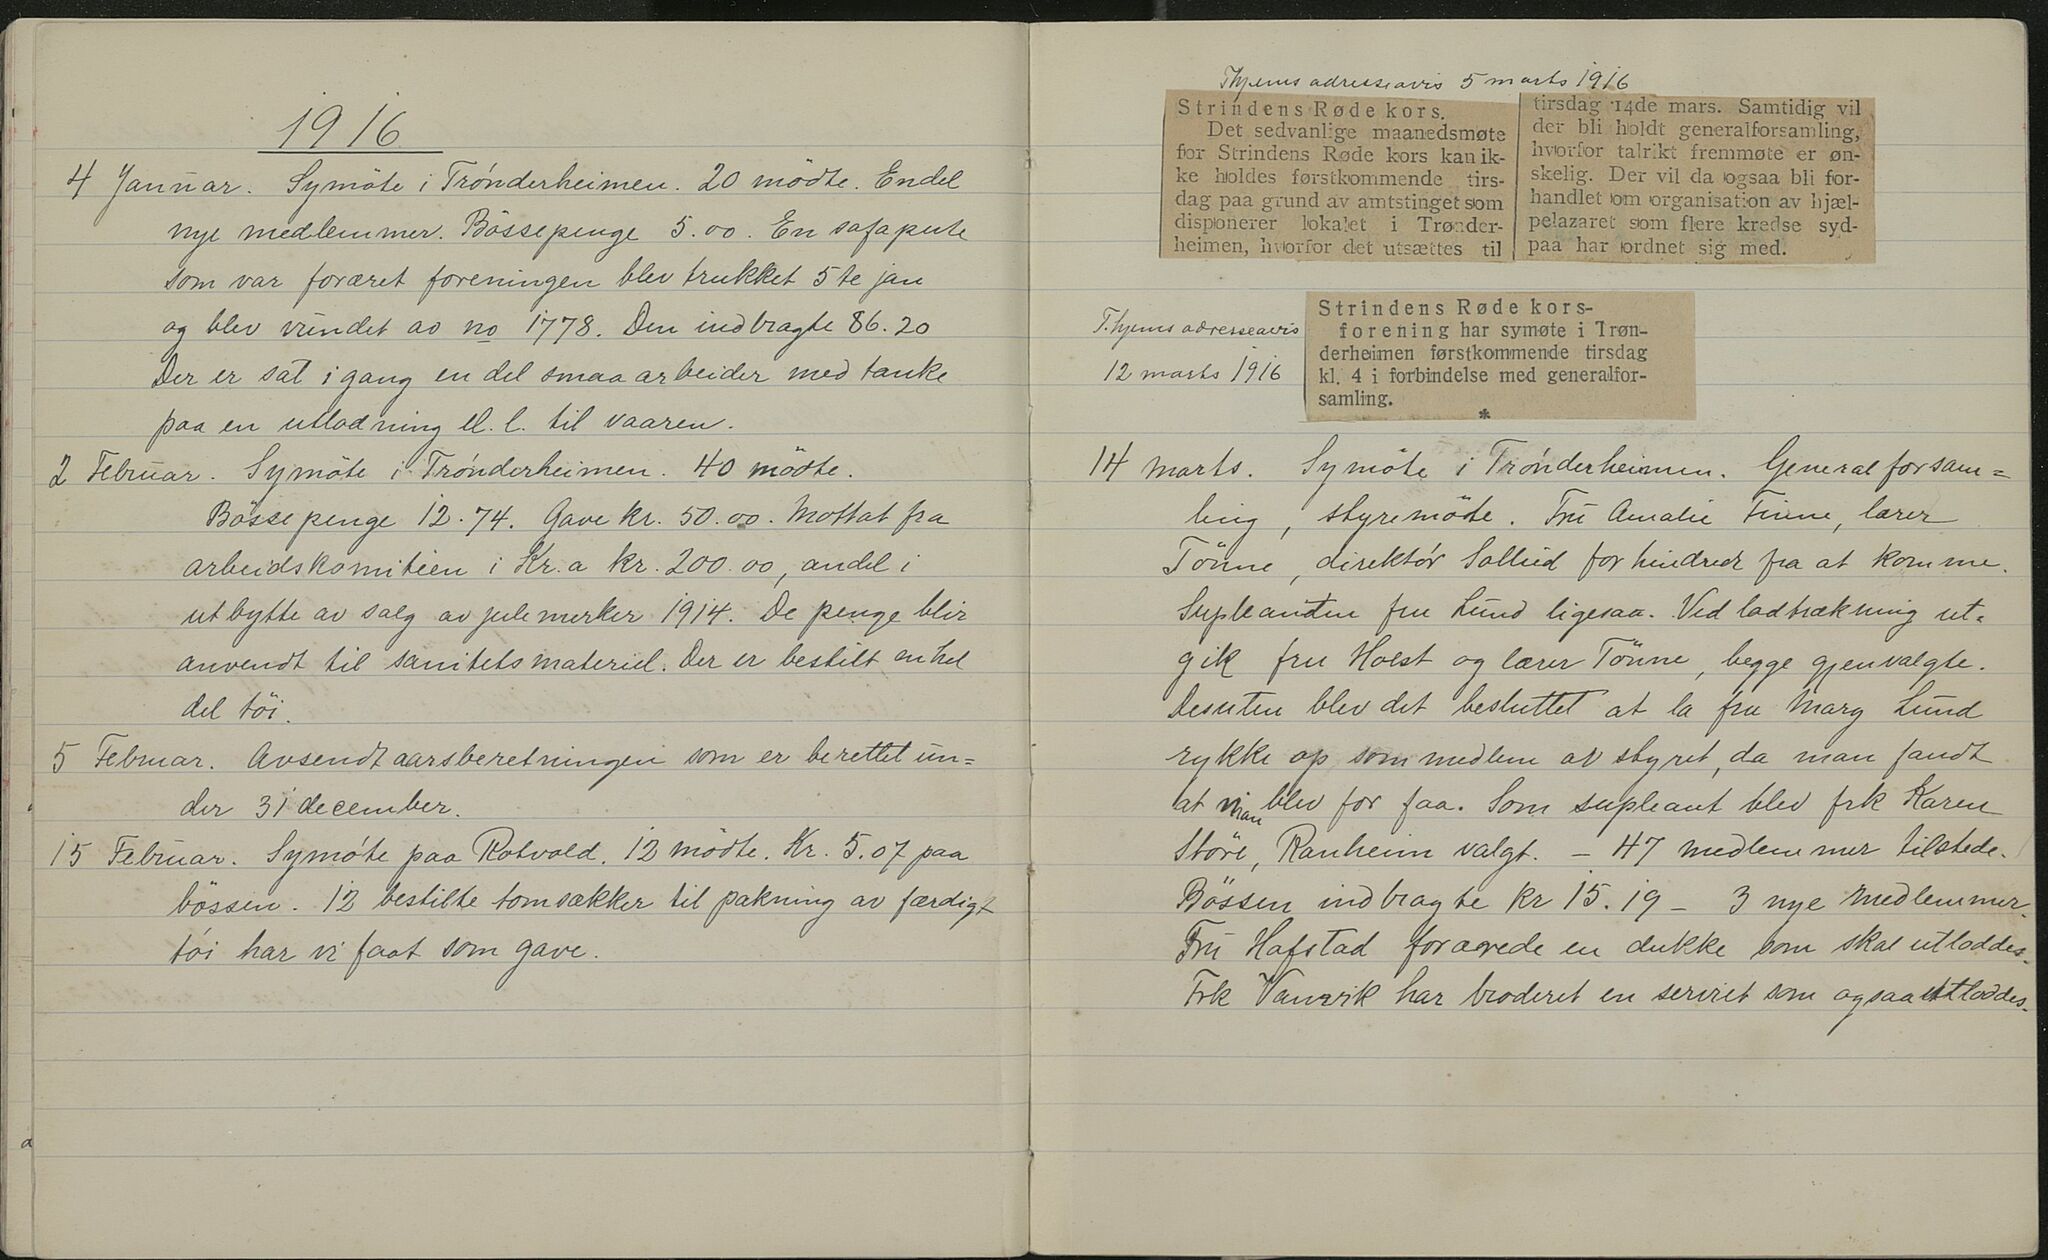 1916
4 Januar. Symöte i Trønderheimen. 20 mödte. Endel
nye medlemmer. Bössepenge 5.00. En safapute
som var foræret foreningen blev trukket 5te jan
og blev vundet av no 1778. Den indbragte 86.20
Der er sat igang en del smaa arbeider med tanke
paa en utlodning el. l. til vaaren.
2 Februar. Symöte i Trønderheimen. 40 mödte.
Bössepenge 12.74. Gave kr. 50.00. Mottat fra
arbeidskomitéen i Kr.a kr. 200.00, andel i
utbytte av salg av julemerker 1914. De penge blir
anvendt til sanitetsmateriel. Der er bestilt en hel
del töi.
5 Februar. Avsendt aarsberetningen som er berettet un=
der 31 december.
15 Februar. Symøte paa Rotvold. 12 mödte. Kr. 5.07 paa
bössen. 12 bestilte tomsækker til pakning av færdigt
töi har vi faat som gave.
Thjems adresseavis 5 marts 1916
Strindens Røde kors.
Det sedvanlige maanedsmøte
for Strindens Røde kors kan ik-
ke holdes førstkommende tirs-
dag paa grund av amtstinget som
disponerer lokalet i Trønder-
heimen, hvorfor det utsættes til
tirsdag 14de mars. Samtidig vil
der bli holdt generalforsamling,
hvorfor talrikt fremmøte er øn-
skelig. Der vil da ogsaa bli for-
handlet om organisation av hjæl-
pelazaret som flere kredse syd-
paa har ordnet sig med.
T.hjems adresseavis
12 marts 1916
Strindens Røde kors-
forening har symøte i Trøn-
derheimen førstkommende tirsdag
kl. 4 i forbindelse med generalfor-
samling.
*
14 marts. Symöte i Trønderheimen. Generalforsam=
ling, styremöde. Fru Amalie Finne, lærer
Tönne, direktør Sollied forhindret fra at komme.
Supleanten fru Lund ligesaa. Ved lodtrækning ut=
gik fru Holst og lærer Tönne, begge gjenvalgte.
Desuten blev det besluttet at la fru Marg Lund
rykke op som medlem av styret, da man fandt
at man blev for faa. Som supleant blev frk Karen
Störe, Ranheim valgt. – 47 medlemmer tilstede.
Bössen indbragte kr 15.19 – 3 nye medlemmer.
Fru Hafstad forærede en dukke som skal utloddes.
Frk Vanvik har broderet en serviet som ogsaa utloddes.